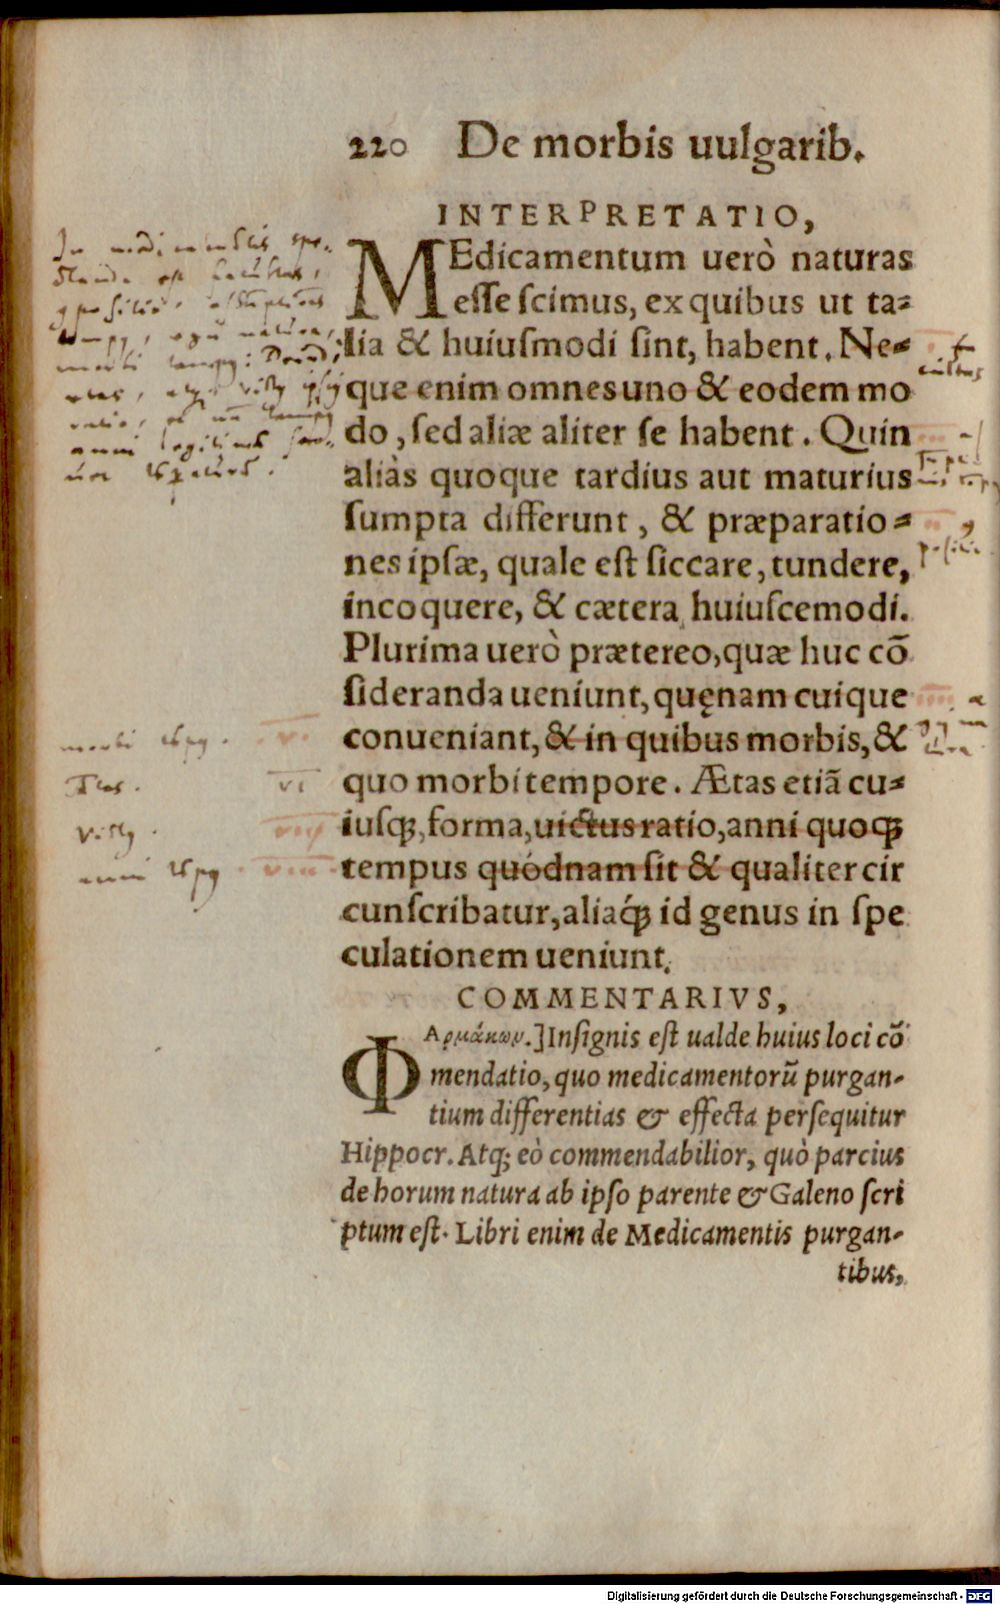 220 De morbis uulgarib.
INTERPRETATIO,
MEdicamentum uerò naturas
esse scimus, ex quibus ut ta-
lia & huiusmodi sint, habent. Ne-
que enim omnes uno & eodem mo
do, sed aliæ aliter se habent. Quin
aliàs quoque tardius aut maturius
sumpta differunt, & præparatio-
nes ipsæ, quale est siccare, tundere,
incoquere, & cætera huiuscemodi.
Plurima uerò prætereo, quæ huc cõ
sideranda ueniunt, quęnam cuique
conueniant, & in quibus morbis, &
quo morbi tempore. Ætas etiã cu-
iusq;, forma, uictus ratio, anni quoq;
tempus quódnam sit & qualiter cir
cunscribatur, aliaq́; id genus in spe
culationem ueniunt.
COMMENTARIVS,
ΦΑρμάκων.] Insignis est ualde huius loci cõ
mendatio, quo medicamentorũ purgan-
tium differentias & effecta persequitur
Hippocr. Atq; eò commendabilior, quò parcius
de horum natura ab ipso parente & Galeno scri
ptum est. Libri enim de Medicamentis purgan-
tibus,
morbi
v.
vi
anni
viii
Digitalisierung gefördert durch die Deutsche Forschungsgemeinschaft - DFG